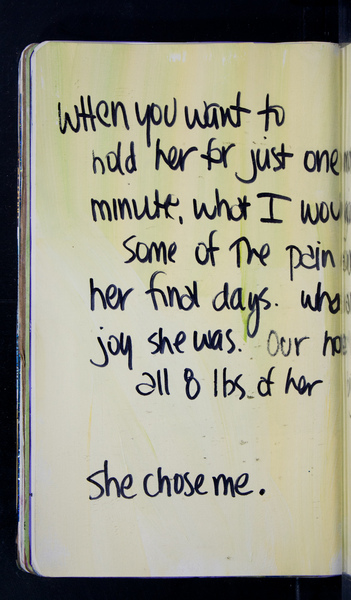 When you want to
hold her for just one
minute, what I wou
some of the pain
her final days. Wha
joy she was. Our ho
all 8 lbs. of her
She chose me.